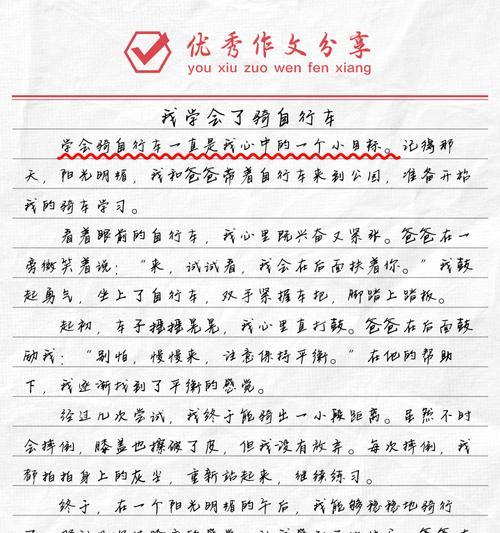 优秀作文分享
you xiu zuo wen fen xiang
我学会了骑自行车
学会骑自行车一直是我心中的一个小目标。记得那
天，阳光明媚，我和爸爸带着自行车来到公园，准备开始
我的骑车学习。
看着眼前的自行车，我心里既兴奋又紧张。爸爸在一
旁微笑着说：“来，试试看，我会在后面扶着你。”我鼓
起勇气，坐上了自行车，双手紧握车把，脚踏上踏板。
起初，车子摇摇晃晃，我心里直打鼓。爸爸在后面鼓
励我：“别怕，慢慢来，注意保持平衡。”在他的帮助
下，我逐渐找到了平衡的感觉。
经过几次尝试，我终于能骑出一小段距离。虽然不时
会摔倒，膝盖也擦破了皮，但我没有放弃。每次摔倒，我
都拍拍身上的灰尘，重新站起来，继续练习。
终于，在一个阳光明媚的午后，我能够稳稳地骑行